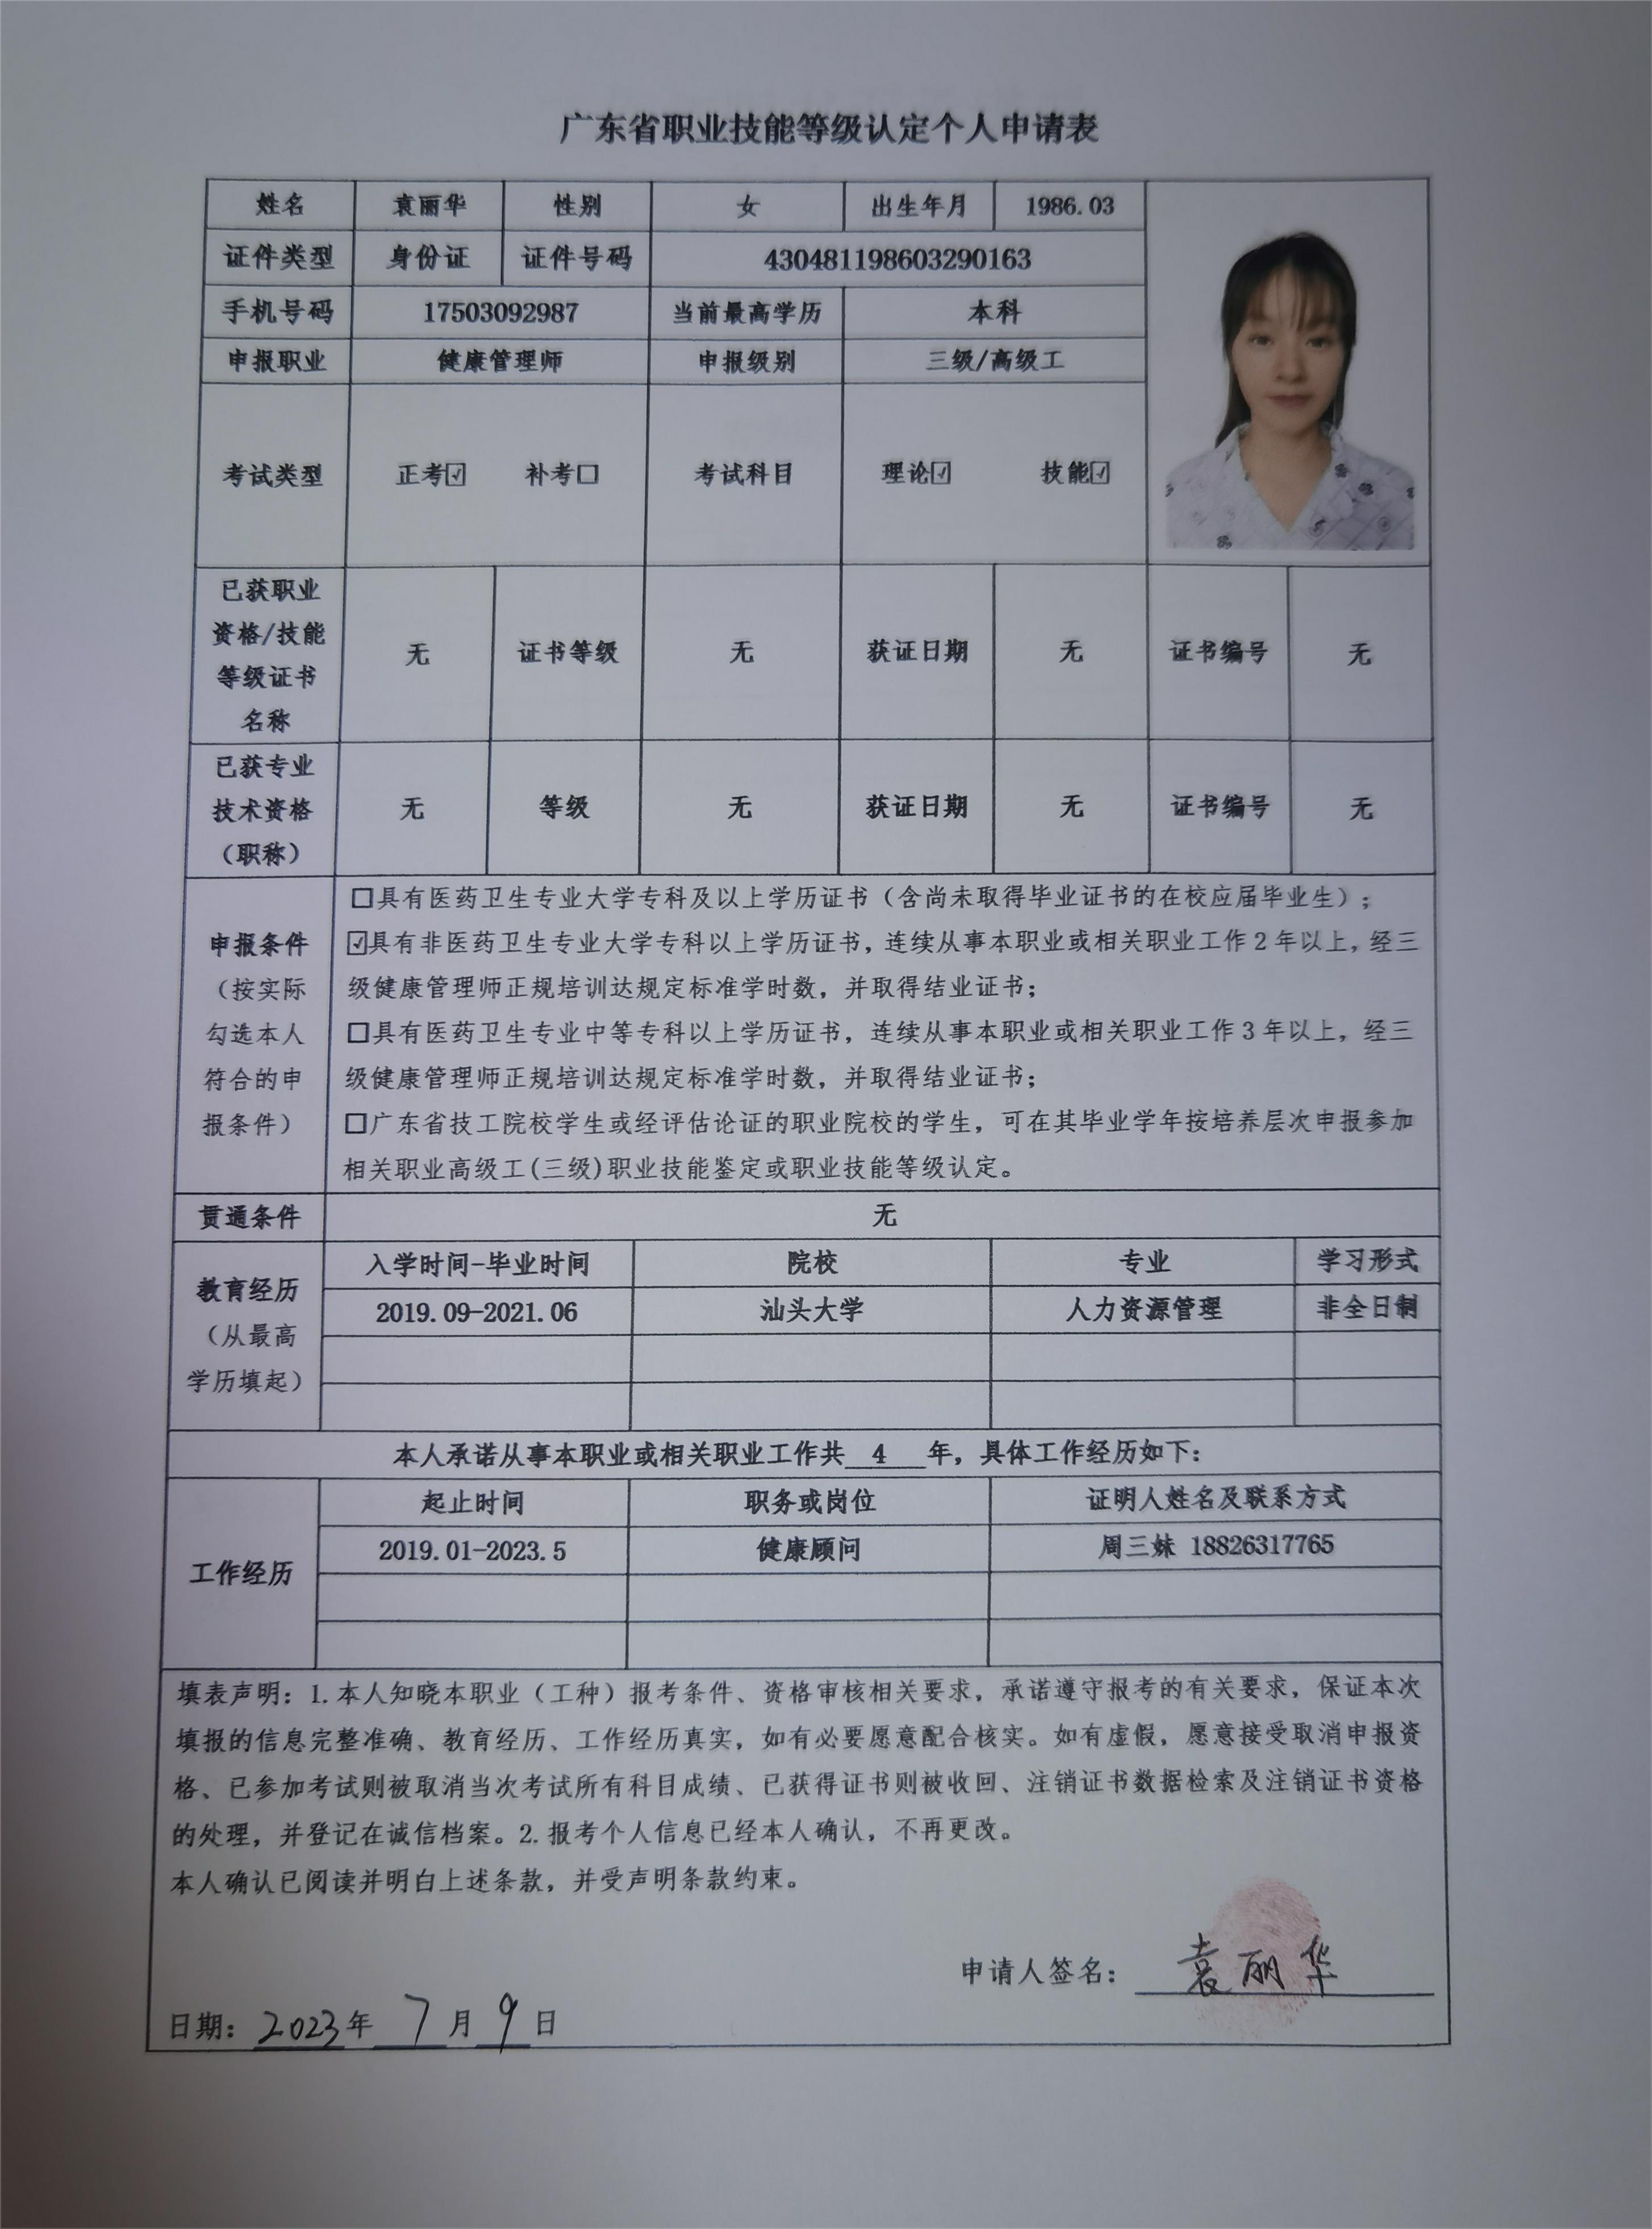 广东省职业技能等级认定个人申请表
姓名 袁丽华 性别 女 出生年月 1986.03
证件类型 身份证 证件号码 430481198603290163
手机号码 17503092987 当前最高学历 本科
申报职业 健康管理师 申报级别 三级/高级工
考试类型 正考☑ 补考☐ 考试科目 理论☑ 技能☑
已获职业
资格/技能
等级证书
名称
无 证书等级 无 获证日期 无 证书编号 无
已获专业
技术资格
（职称）
无 等级 无 获证日期 无 证书编号 无
申报条件
（按实际
勾选本人
符合的申
报条件）
☐具有医药卫生专业大学专科及以上学历证书（含尚未取得毕业证书的在校应届毕业生）；
☑具有非医药卫生专业大学专科以上学历证书，连续从事本职业或相关职业工作2年以上，经三
级健康管理师正规培训达规定标准学时数，并取得结业证书；
☐具有医药卫生专业中等专科以上学历证书，连续从事本职业或相关职业工作3年以上，经三
级健康管理师正规培训达规定标准学时数，并取得结业证书；
☐广东省技工院校学生或经评估论证的职业院校的学生，可在其毕业学年按培养层次申报参加
相关职业高级工(三级)职业技能鉴定或职业技能等级认定。
贯通条件 无
教育经历
（从最高
学历填起）
入学时间-毕业时间 院校 专业 学习形式
2019.09-2021.06 汕头大学 人力资源管理 非全日制
本人承诺从事本职业或相关职业工作共 4 年，具体工作经历如下：
工作经历
起止时间 职务或岗位 证明人姓名及联系方式
2019.01-2023.5 健康顾问 周三妹 18826317765
填表声明：1.本人知晓本职业（工种）报考条件、资格审核相关要求，承诺遵守报考的有关要求，保证本次
填报的信息完整准确、教育经历、工作经历真实，如有必要愿意配合核实。如有虚假，愿意接受取消申报资
格、已参加考试则被取消当次考试所有科目成绩、已获得证书则被收回、注销证书数据检索及注销证书资格
的处理，并登记在诚信档案。2.报考个人信息已经本人确认，不再更改。
本人确认已阅读并明白上述条款，并受声明条款约束。
申请人签名： 袁丽华
日期：2023年 7 月 9 日